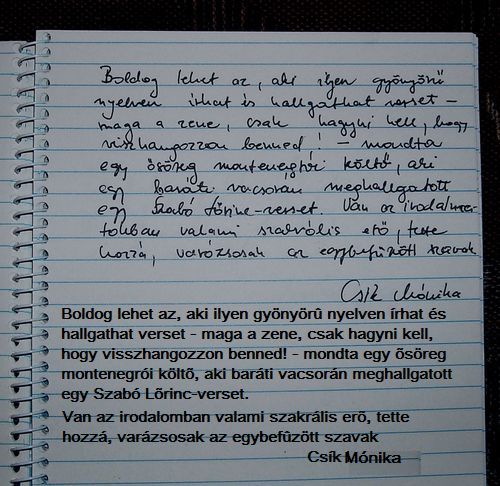 Boldog lehet az, aki ilyen gyönyörű
nyelven írhat és hallgathat verset -
maga a zene, csak hagyni kell, hogy
visszhangozzon benned! - mondta
egy ősöreg montenegrói költő, aki
egy baráti vacsorán meghallgatott
egy Szabó Lőrinc-verset. Van az irodalom-
ban valami szakrális erő, tette
hozzá, varázsosak az egybefűzött szavak
Csík Mónika
Boldog lehet az, aki ilyen gyönyörû nyelven írhat és
hallgathat verset - maga a zene, csak hagyni kell,
hogy visszhangozzon benned! - mondta egy õsöreg
montenegrói költõ, aki baráti vacsorán meghallgatott
egy Szabó Lõrinc-verset.
Van az irodalomban valami szakrális erõ, tette
hozzá, varázsosak az egybefûzött szavak
Csík Mónika